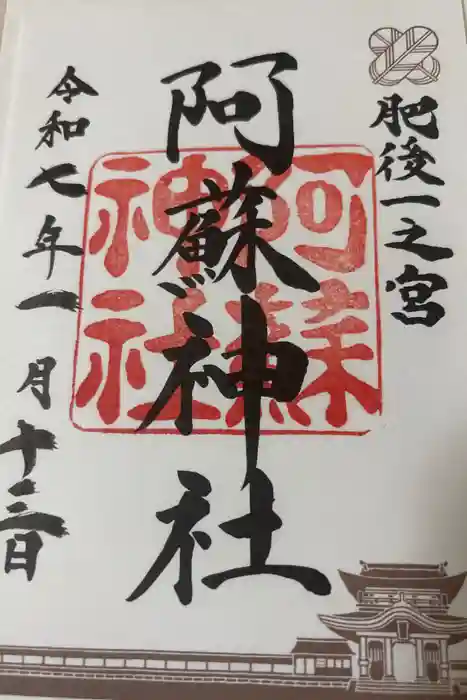 肥後一之宮
阿蘇神社
阿蘇神社
令和七年一月十三日